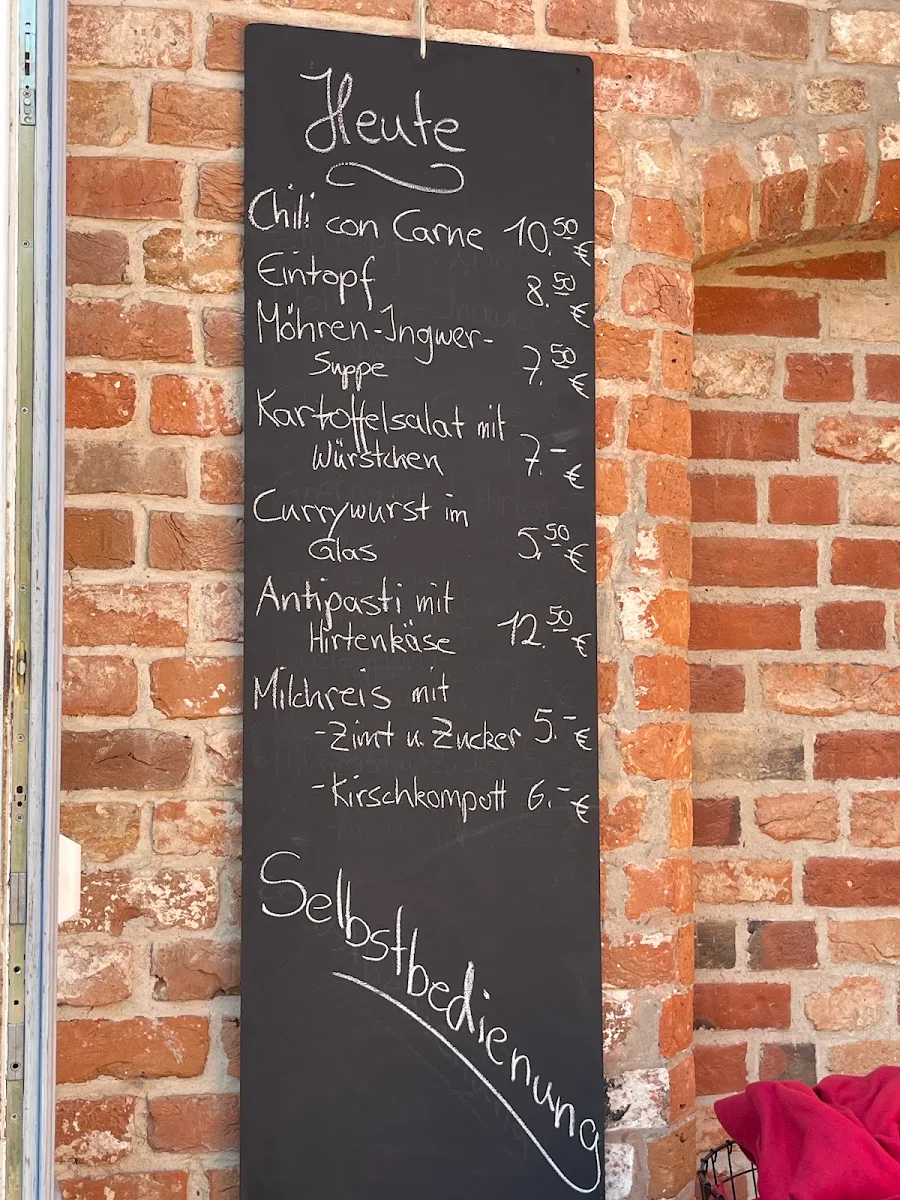 Heute
Chili con Carne 10.50 €
Eintopf 8.50 €
Möhren-Ingwer-
Suppe 7.50 €
Kartoffelsalat mit
Würstchen 7.- €
Currywurst im
Glas 5.50 €
Antipasti mit
Hirtenkäse 12.50 €
Milchreis mit
-Zimt u. Zucker 5.- €
-Kirschkompott 6.- €
Selbstbedienung